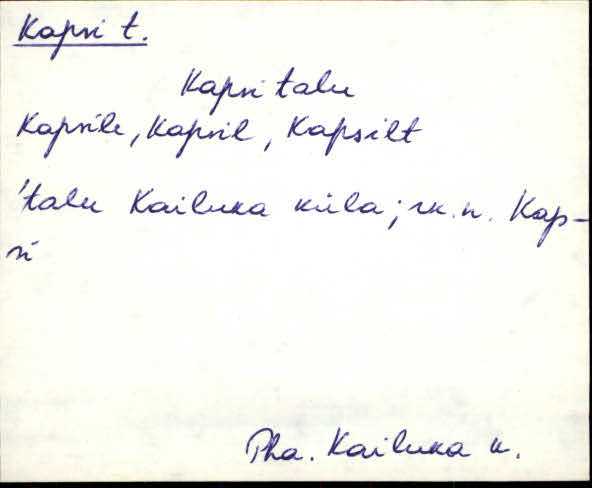 Kapsi t.
Kapsi talu
Kapsile, Kapsil, Kapsilt
'talu Kailuka küla; rk. n. Kap-
si
Pha. Kailuka k.